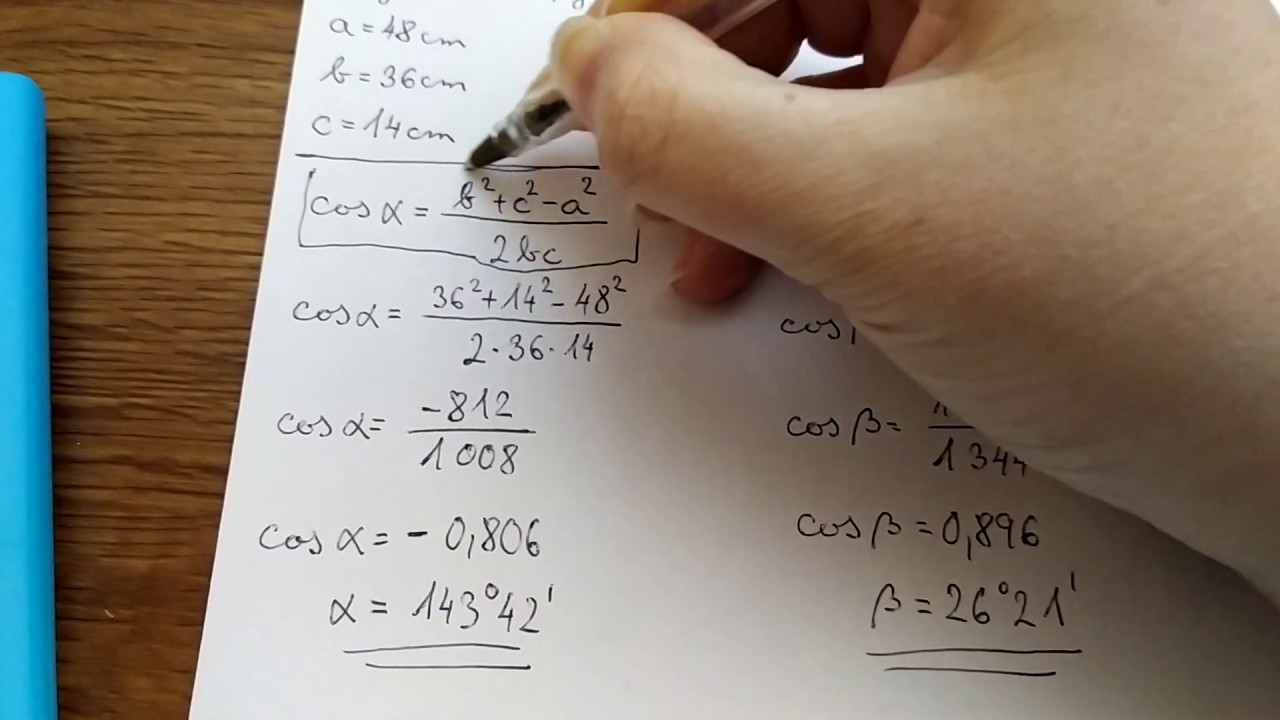 a = 48 cm
b = 36 cm
c = 14 cm
cos α = b²+c²-a² / 2bc
cos α = 36²+14²-48² / 2·36·14
cos α = -812 / 1 008
cos α = - 0,806
α = 143°42'
cos
cos β =
cos β = 0,896
β = 26°21'